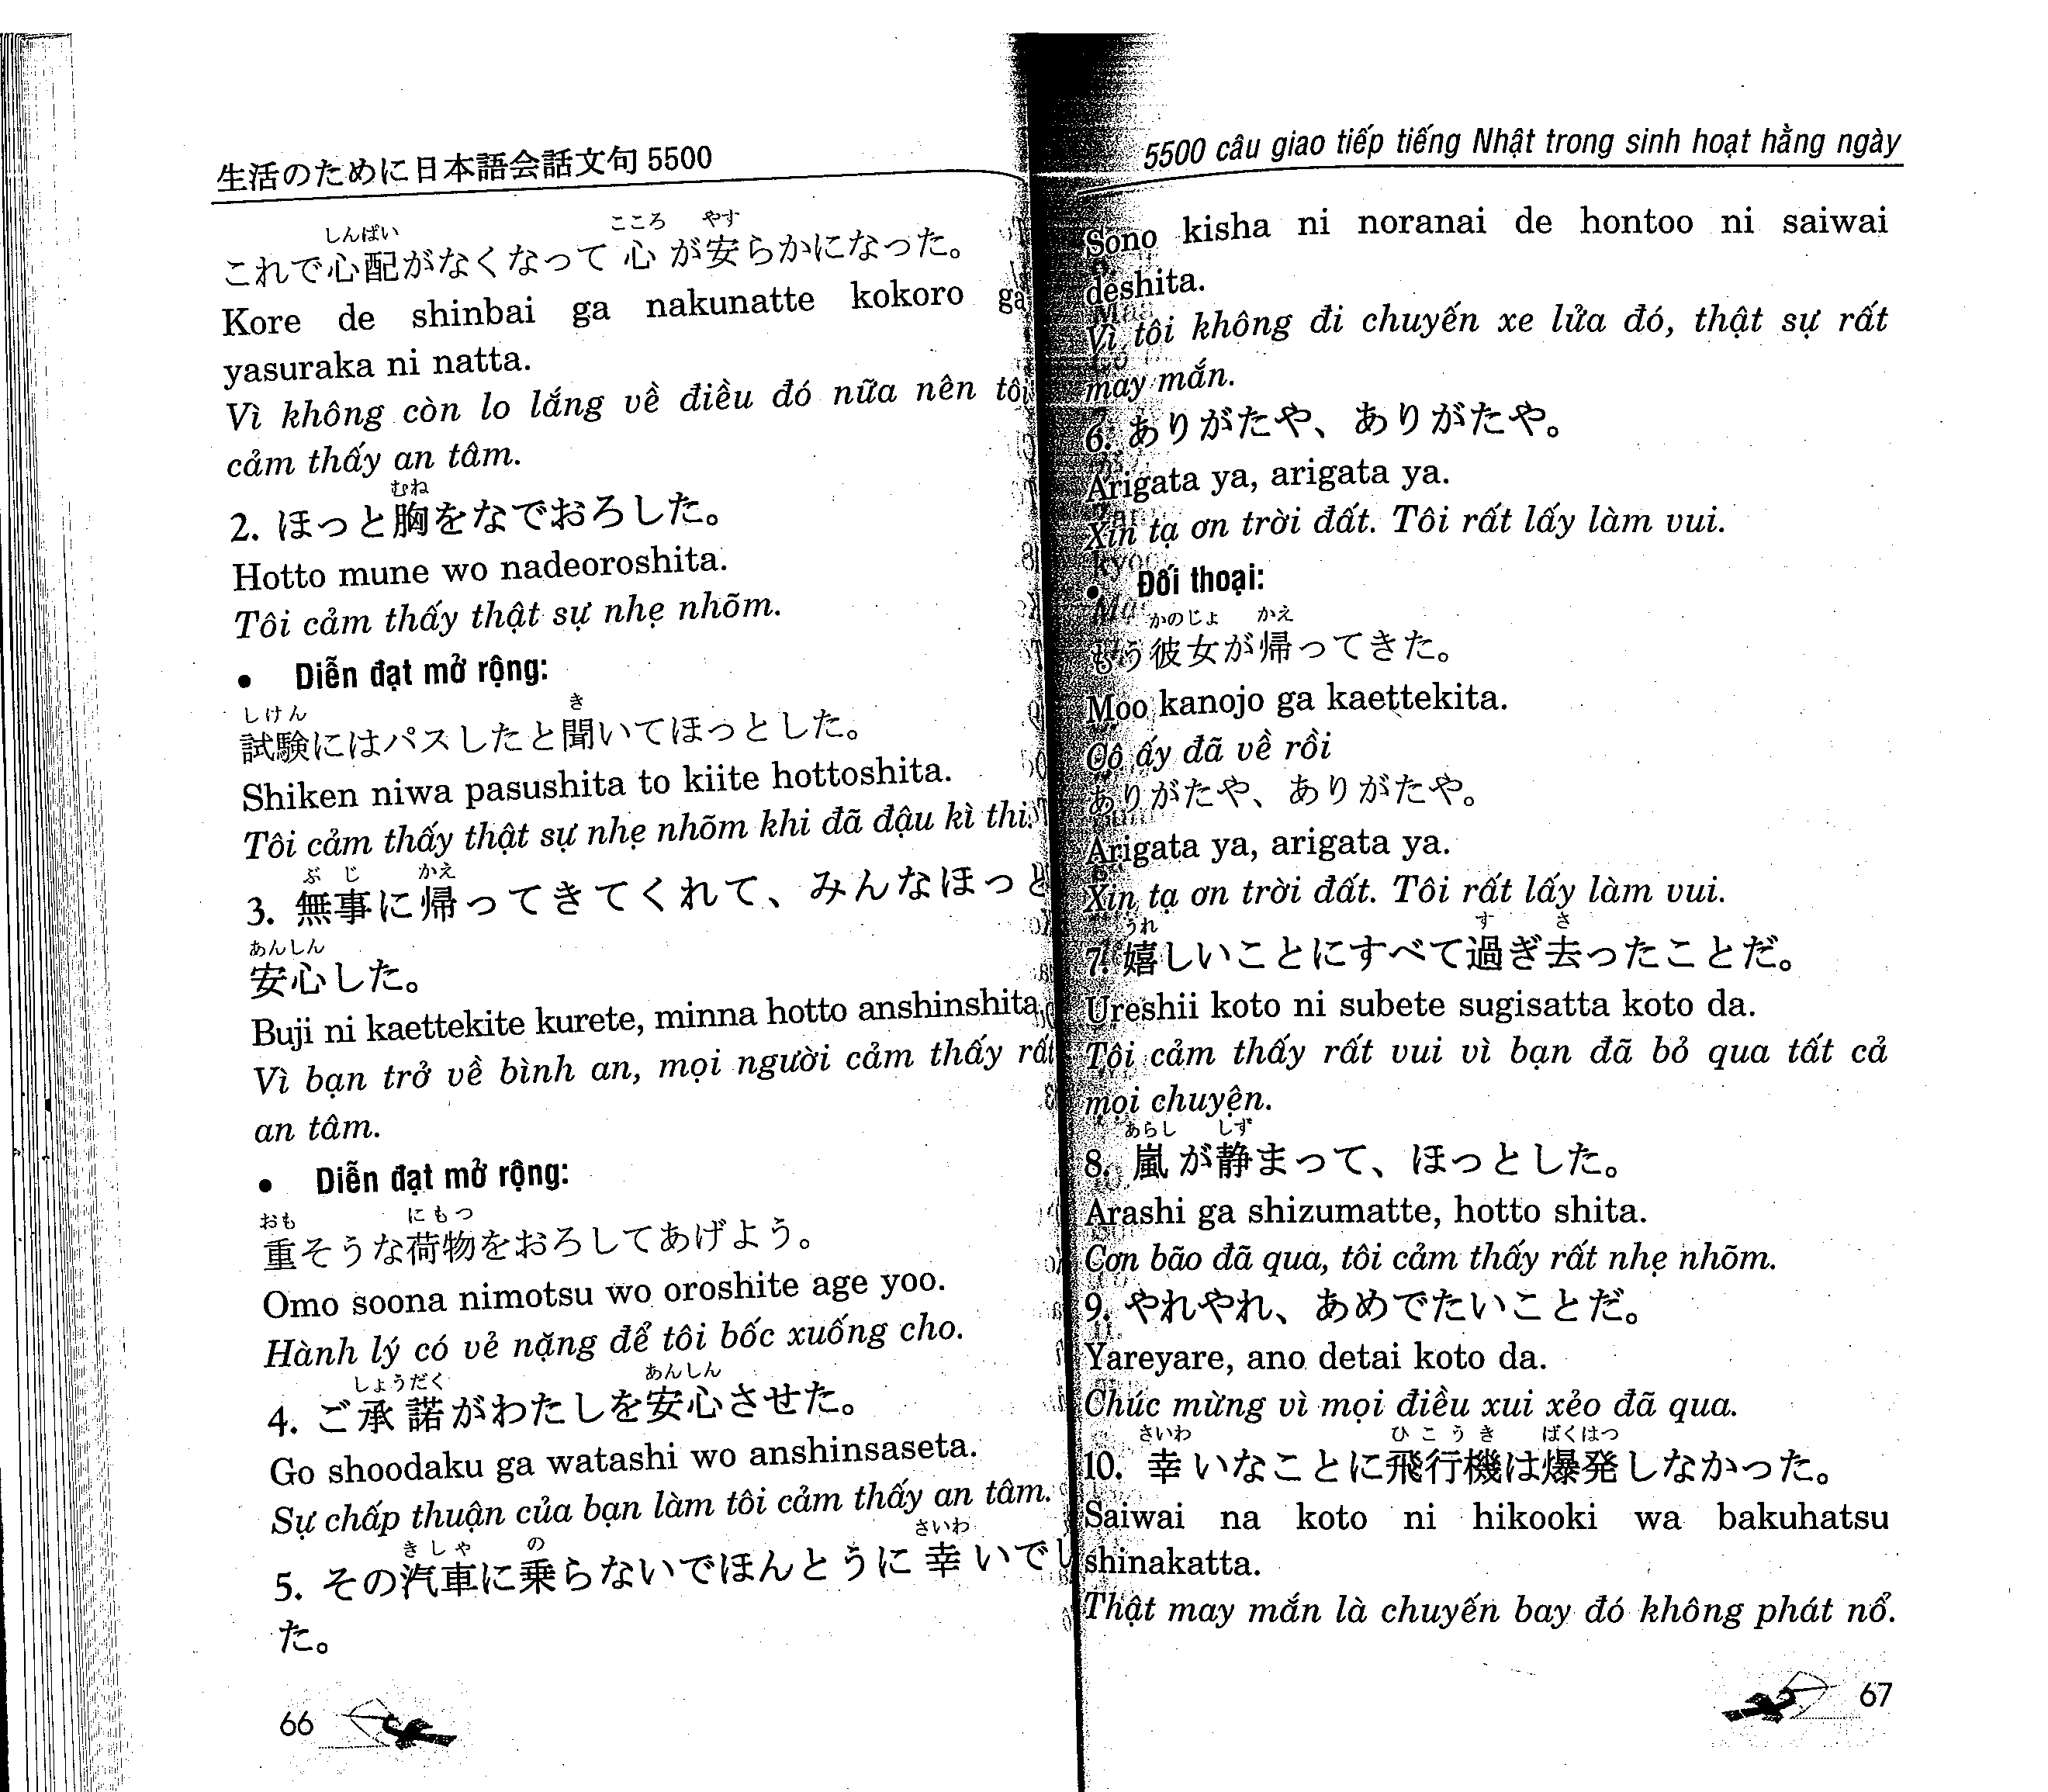 生活のために日本語会話文句 5500
しんぱい こころ やす
これで心配がなくなって心が安らかになった。
Kore de shinbai ga nakunatte kokoro ga
yasuraka ni natta.
Vì không còn lo lắng về điều đó nữa nên tôi
cảm thấy an tâm.
むね
2. ほっと胸をなでおろした。
Hotto mune wo nadeoroshita.
Tôi cảm thấy thật sự nhẹ nhõm.
• Diễn đạt mở rộng:
しけん き
試験にはパスしたと聞いてほっとした。
Shiken niwa pasushita to kiite hottoshita.
Tôi cảm thấy thật sự nhẹ nhõm khi đã đậu kì thi.
ぶじ かえ
3. 無事に帰ってきてくれて、みんなほっと
あんしん
安心した。
Buji ni kaettekite kurete, minna hotto anshinshita.
Vì bạn trở về bình an, mọi người cảm thấy rất
an tâm.
• Diễn đạt mở rộng:
おも にもつ
重そうな荷物をおろしてあげよう。
Omo soona nimotsu wo oroshite age yoo.
Hành lý có vẻ nặng để tôi bốc xuống cho.
しょうだく あんしん
4. ご承諾がわたしを安心させた。
Go shoodaku ga watashi wo anshinsaseta.
Sự chấp thuận của bạn làm tôi cảm thấy an tâm.
きしゃ の さいわ
5. その汽車に乗らないでほんとうに幸いでし
た。
66
5500 câu giao tiếp tiếng Nhật trong sinh hoạt hằng ngày
Sono kisha ni noranai de hontoo ni saiwai
deshita.
Vì tôi không đi chuyến xe lửa đó, thật sự rất
may mắn.
6. ありがたや、ありがたや。
Arigata ya, arigata ya.
Xin tạ ơn trời đất. Tôi rất lấy làm vui.
• Đối thoại:
かのじょ かえ
もう彼女が帰ってきた。
Moo kanojo ga kaettekita.
Cô ấy đã về rồi
ありがたや、ありがたや。
Arigata ya, arigata ya.
Xin tạ ơn trời đất. Tôi rất lấy làm vui.
うれ す さ
7. 嬉しいことにすべて過ぎ去ったことだ。
Ureshii koto ni subete sugisatta koto da.
Tôi cảm thấy rất vui vì bạn đã bỏ qua tất cả
mọi chuyện.
あらし しず
8. 嵐が静まって、ほっとした。
Arashi ga shizumatte, hotto shita.
Cơn bão đã qua, tôi cảm thấy rất nhẹ nhõm.
9. やれやれ、あめでたいことだ。
Yareyare, ano detai koto da.
Chúc mừng vì mọi điều xui xẻo đã qua.
さいわ ひこうき ばくはつ
10. 幸いなことに飛行機は爆発しなかった。
Saiwai na koto ni hikooki wa bakuhatsu
shinakatta.
Thật may mắn là chuyến bay đó không phát nổ.
67